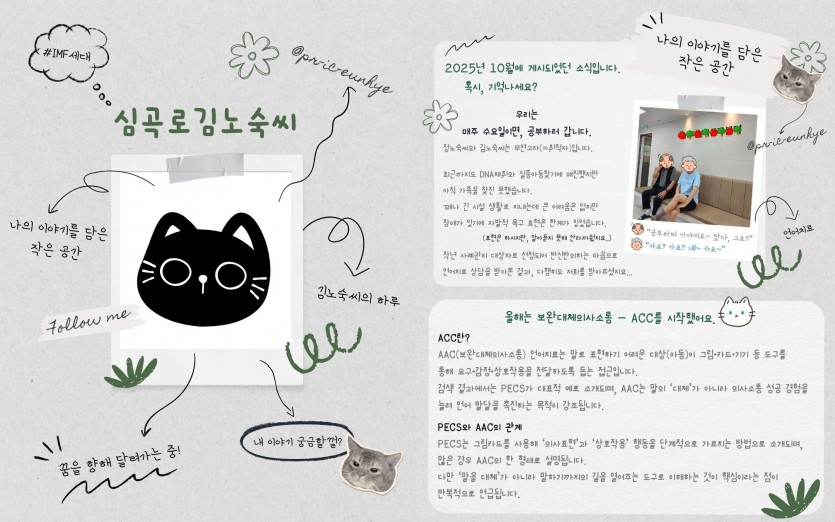 #IMF세대
@pr-ic-eunhye
심곡로김노숙씨
나의 이야기를 담은
작은 공간
김노숙씨의 하루
Follow me
꿈을 향해 달려가는 중!
내 이야기 궁금할걸?
나의 이야기를 담은
작은 공간
2025년 10월에 게시되었던 소식입니다.
혹시, 기억나세요?
우리는
매주 수요일이면, 공부하러 갑니다.
정노숙씨와 김노숙씨는 무연고자(=위탁자)입니다.
최근까지도 DNA채취와 실종아동찾기에 매진했지만
아직 가족을 찾진 못했습니다.
꽤나 긴 시설 생활로 지내는데 큰 어려움은 없지만
장애가 있기에 자발적 욕구 표현은 한계가 있었습니다.
(표현은 하시지만, 알아듣지 못해 안타까웠지요..)
작년 사례관리 대상자로 선정되어 반신반의하는 마음으로
언어치료 상담을 받아본 결과, 다행히도 저희를 받아주셨지요...
@pr-ic-eunhye
"공부하러 가야지요~ 맞다, 그죠?"
"가요? 가요? 네~ 가요~"
언어치료
올해는 보완대체의사소통 - ACC를 시작했어요.
ACC란?
AAC(보완대체의사소통) 언어치료는 말로 표현하기 어려운 대상(아동)이 그림·카드·기기 등 도구를
통해 요구·감정·상호작용을 전달하도록 돕는 접근입니다.
검색 결과에서는 PECS가 대표적 예로 소개되며, AAC는 말의 '대체'가 아니라 의사소통 성공 경험을
늘려 언어 발달을 촉진하는 목적이 강조됩니다.
PECS와 AAC의 관계
PECS는 그림카드를 사용해 '의사표현'과 '상호작용' 행동을 단계적으로 가르치는 방법으로 소개되며,
많은 경우 AAC의 한 형태로 설명됩니다.
다만 '말을 대체'가 아니라 말하기까지의 길을 열어주는 도구로 이해하는 것이 핵심이라는 점이
반복적으로 언급됩니다.